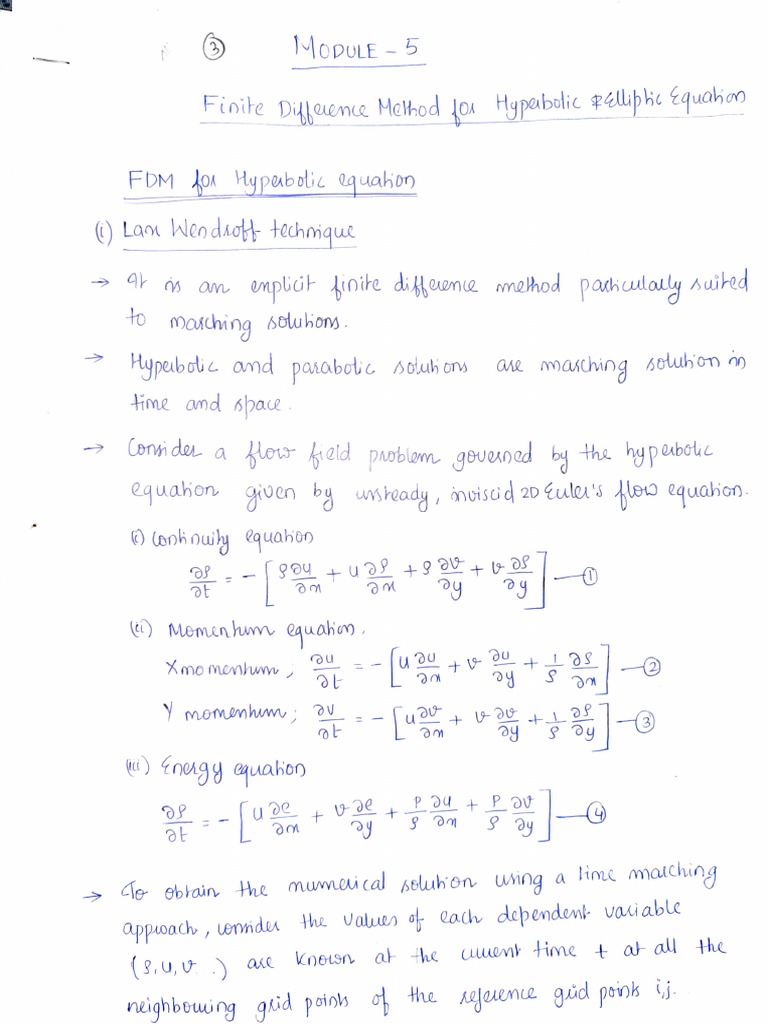 ③ MODULE - 5
Finite Difference Method for Hyperbolic & Elliptic Equation
FDM for Hyperbolic equation
(i) Lax Wendroff technique
→ It is an explicit finite difference method particularly suited
to marching solutions.
→ Hyperbolic and parabolic solutions are marching solution in
time and space.
→ Consider a flow field problem governed by the hyperbolic
equation given by unsteady, inviscid 2D Euler's flow equation.
(i) Continuity equation
∂ρ/∂t = - [ρ ∂u/∂x + u ∂ρ/∂x + ρ ∂v/∂y + v ∂ρ/∂y] — ①
(ii) Momentum equation.
X momentum; ∂u/∂t = - [u ∂u/∂x + v ∂u/∂y + 1/ρ ∂ρ/∂x] — ②
Y momentum; ∂v/∂t = - [u ∂v/∂x + v ∂v/∂y + 1/ρ ∂ρ/∂y] — ③
(iii) Energy equation
∂ρ/∂t = - [u ∂e/∂x + v ∂e/∂y + P/ρ ∂u/∂x + P/ρ ∂v/∂y] — ④
→ To obtain the numerical solution using a time marching
approach, consider the values of each dependent variable
(ρ, u, v .) are known at the current time t at all the
neighbouring grid points of the reference grid point i,j.